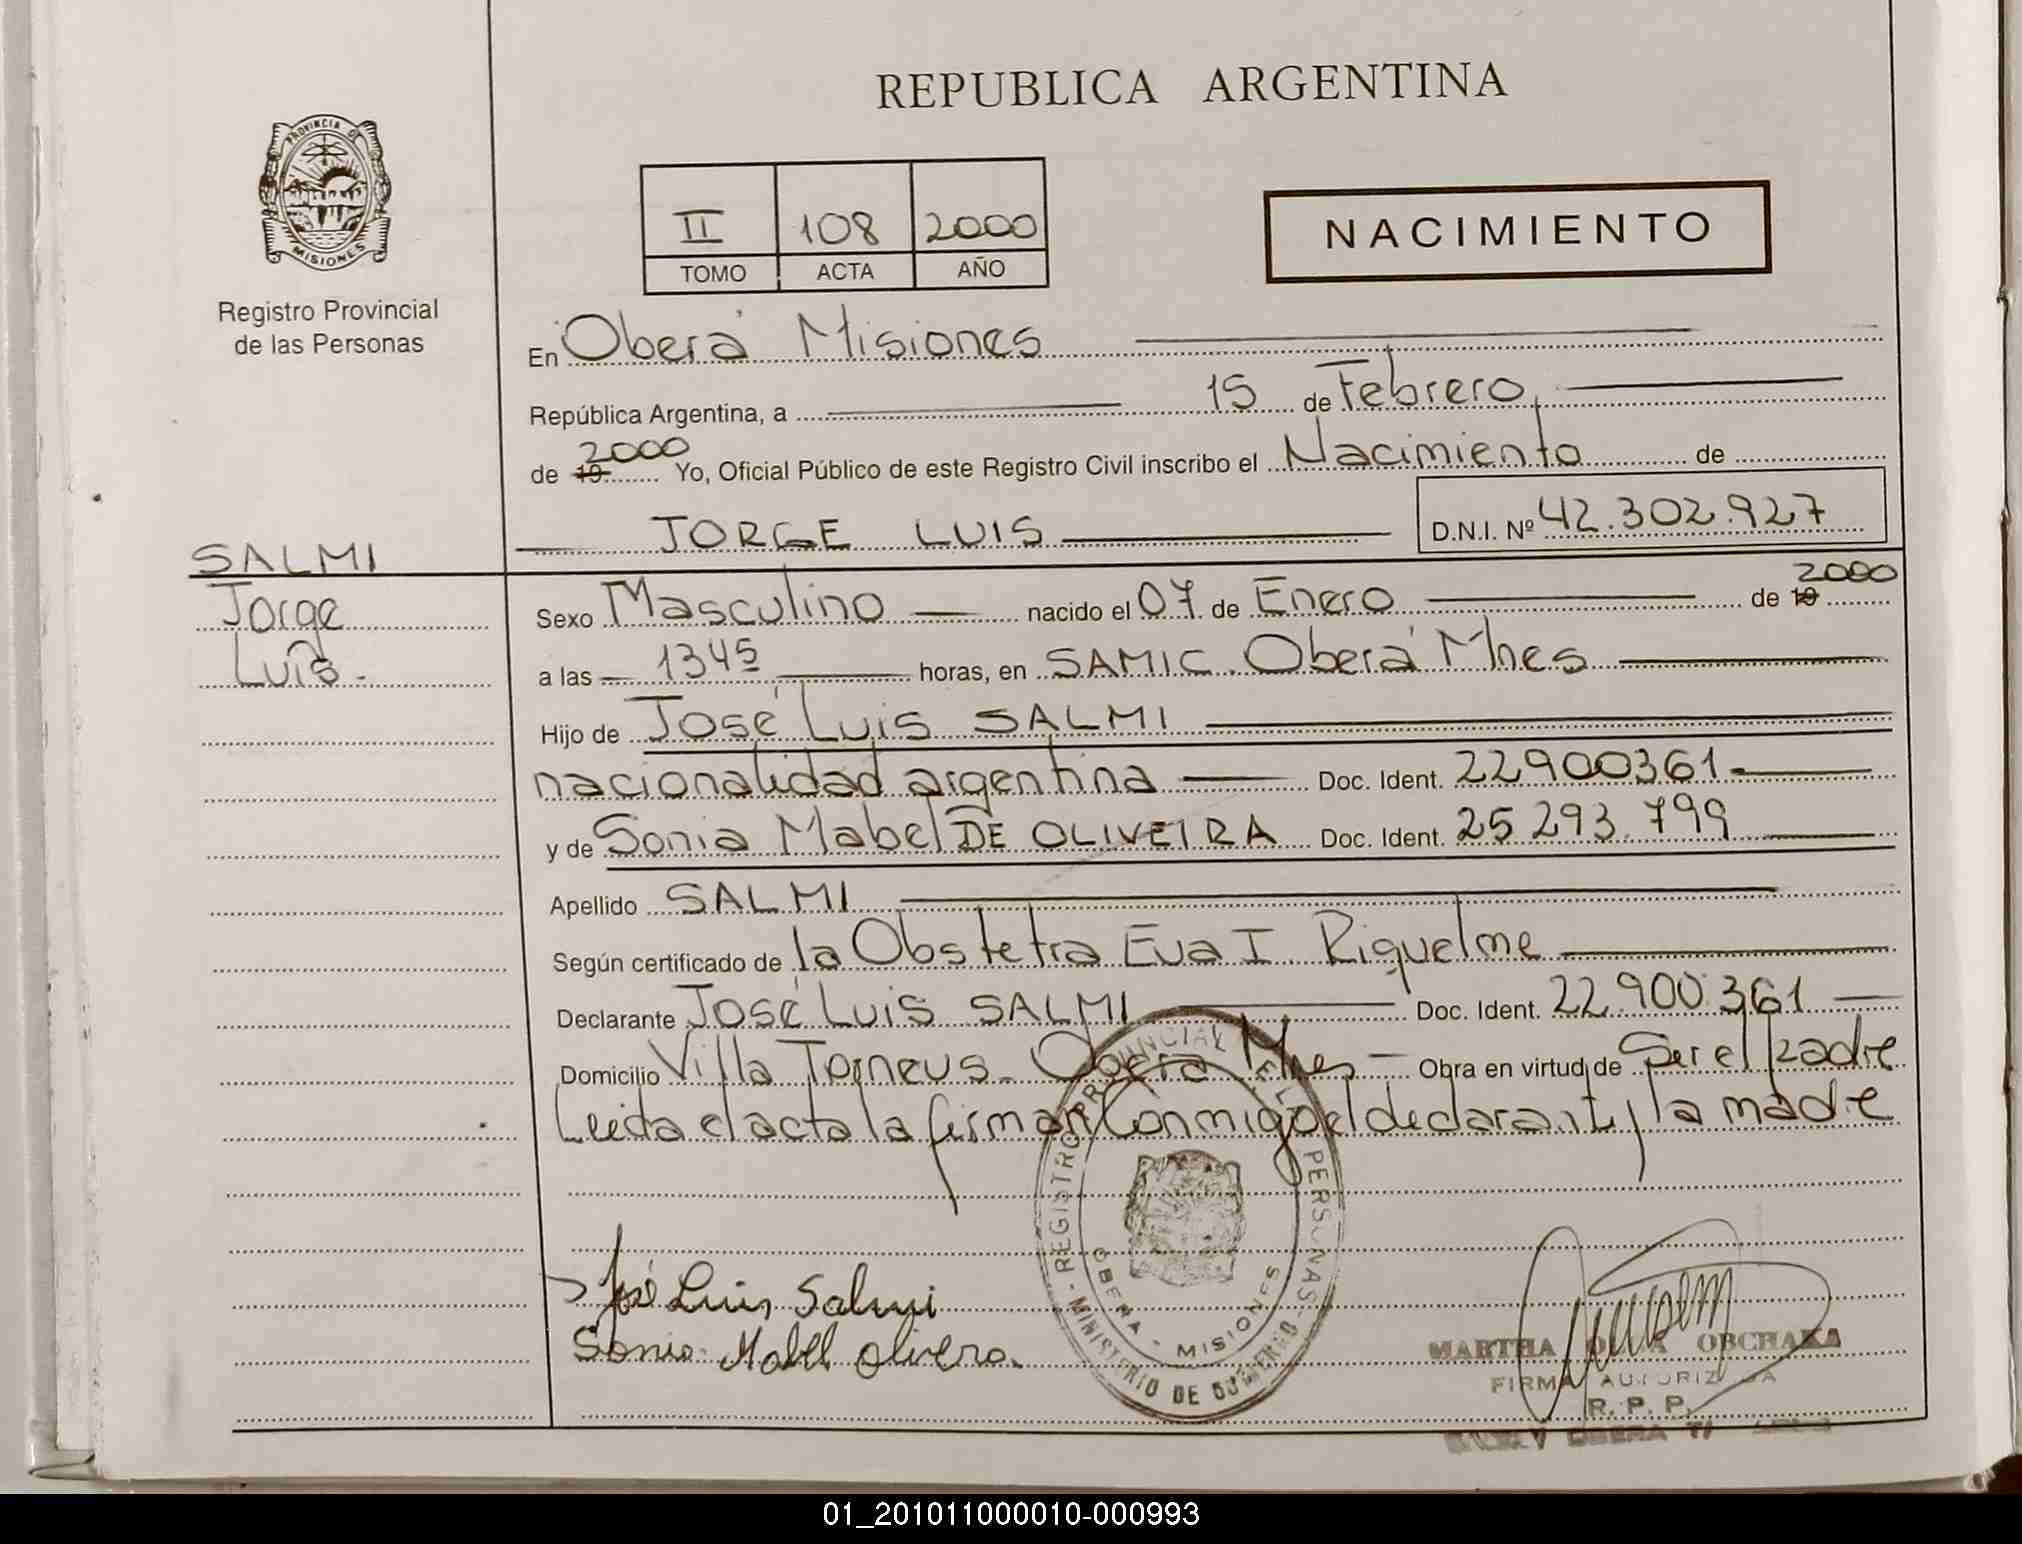 REPUBLICA ARGENTINA
PROVINCIA DE
MISIONES
Registro Provincial
de las Personas
II 108 2000
TOMO ACTA AÑO
NACIMIENTO
En Oberá Misiones
República Argentina, a 15 de Febrero
de 19 2000 Yo, Oficial Público de este Registro Civil inscribo el Nacimiento de
JORGE LUIS D.N.I. Nº 42.302.927
SALMI
Jorge
Luis.-
Sexo Masculino nacido el 07 de Enero de 19 2000
a las 1345 horas, en SAMIC. Oberá Mnes
Hijo de José Luis SALMI
nacionalidad argentina Doc. Ident. 22900361
y de Sonia Mabel DE OLIVEIRA Doc. Ident. 25 293.799
Apellido SALMI
Según certificado de la Obstetra Eva I. Riquelme
Declarante José Luis SALMI Doc. Ident. 22.900.361
Domicilio Villa Torneus. Oberá Mnes Obra en virtud de Ser el padre
Leida el acta la firman conmigo el declarante y la madre
José Luis Salmi
Sonia Mabel Olivera.
REGISTRO PROVINCIAL DE LAS PERSONAS - MINISTERIO DE GOBIERNO -
OBERA - MISIONES
MARTHA OLGA OBCHAKA
FIRMA AUTORIZADA
R. P. P.
OBERA
01_201011000010-000993